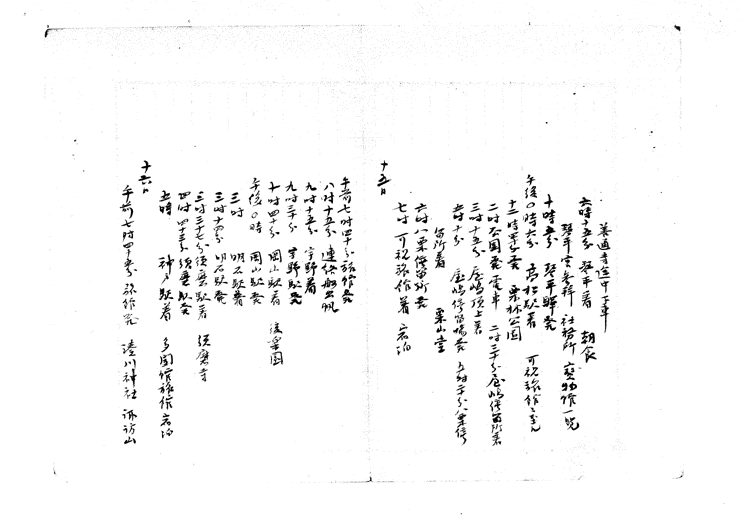 善通寺途中下車
六時十五分 琴平着 朝食
琴平宮参拝 社務所 宝物館一覧
十時五分 琴平駅発
午後〇時六分 高松駅着 可祝旅館ニ至ル
十二時四十分発 栗林公園
二時公園発電車 二時三十分屋嶋停留所着
三時十五分 屋嶋頂上着
五時十分 屋嶋停留場発 五時二十分八栗停
留所着 栗山堂
六時八栗停留所発
七時 可祝旅館着 宿泊
十五日
午前七時四十分旅館発
八時十五分 連絡船出帆
九時十五分 宇野着
九時三十分 宇野駅発
十時四十分 岡山駅着 後楽園
午後〇時 岡山駅発
三時 明石駅着
三時十四分 明石駅発
三時三十七分須磨駅着 須磨寺
四時四十三分須磨駅発
五時 神戸駅着 多聞館旅館宿泊
十六日
午前七時四十五分 旅館発 湊川神社 諏訪山